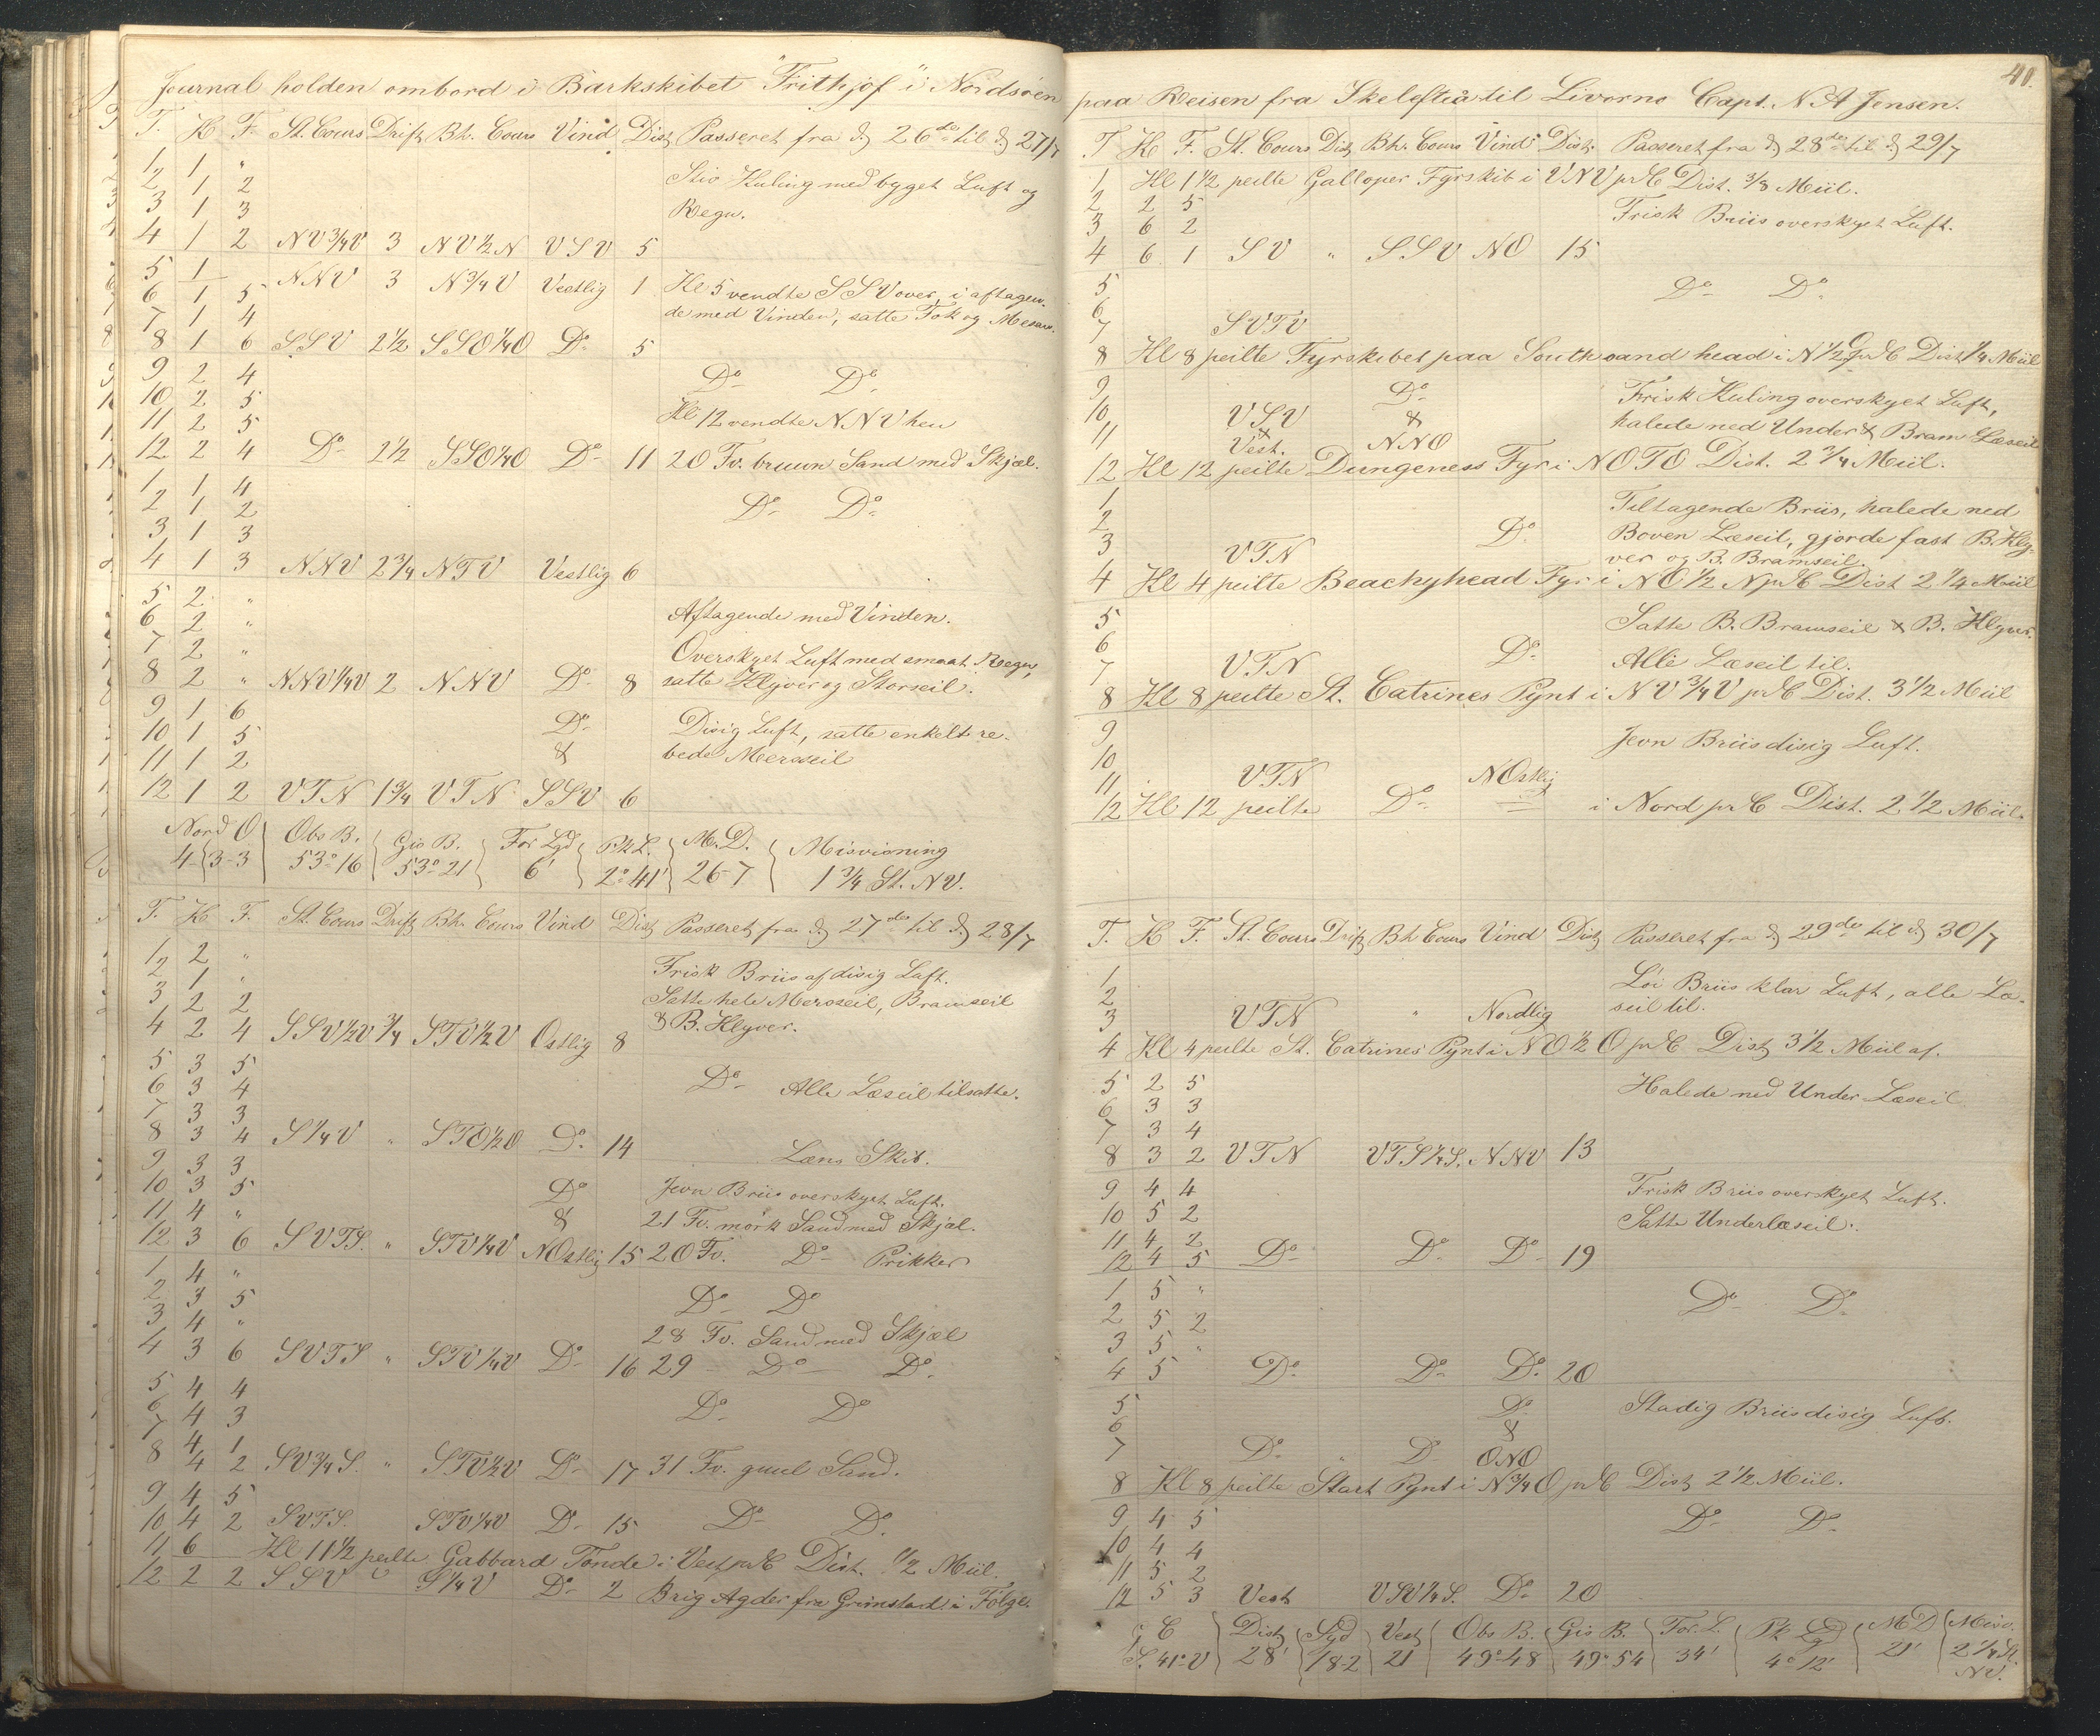 Journal holden ombord i Barkskibet "Frithjof" i Nordsøen
T. K F. St. Cours Drift Bh. Cours Vind Dist Passeret fra d 26de til d 27/7
1 1 "
2 1 2 Stiv Kuling med byget Luft og
3 1 3 Regn.
4 1 2 NV 3/4 V 3 NV 1/2 N VSV 5
5 1 NNV 3 N 3/4 V Vestlig 1 Kl 5 vendte SSV over, i aftagen-
6 1 5 de med Vinden, satte Fok og Mesan.
7 1 4
8 1 6 SSV 2 1/2 SSO 1/4 O Do 5
9 2 4 Do Do
10 2 5
11 2 5 Kl 12 vendte NNV hen
12 2 4 Do 2 1/2 SSO 1/4 O Do 11 20 Fv. bruun Sand med Skjæl.
1 1 4
2 1 2 Do Do
3 1 3
4 1 3 NNV 2 3/4 NTV Vestlig 6
5 2 "
6 2 " Aftagende med Vinden.
7 2 " Overskyet Luft med smaat Regn,
8 2 " NNV 1/4 V 2 NNV Do 8 satte Klyver og Storseil.
9 1 6
10 1 5 Do Disig Luft, satte enkelt re-
11 1 2 & bede Mersseil
12 1 2 VTN 1 3/4 VTN SSV 6
Nord O Obs B. Gis B. For Lgd Pk L. M. D. Misvisning
4 3-3 53° 16 53° 21 6' 2° 41' 26-7 1 3/4 St. NV.
T. K F. St. Cours Drift Bh. Cours Vind Dist Passeret fra d 27de til d 28/7
1 2 "
2 1 " Frisk Briis af disig Luft.
3 2 2 Satte hele Mersseil, Bramseil
4 2 4 SSV 1/2 V 3/4 STV 1/2 V Ostlig 8 & B. Klyver.
5 3 5
6 3 4 Do Alle Læseil tilsatte.
7 3 3
8 3 4 S 1/4 V " STO 1/2 O Do 14 Læns Skib.
9 3 3
10 3 5 Do Jevn Briis overskyet Luft.
11 4 " & 21 Fv. mørk Sand med Skjæl.
12 3 6 SVTS. " STV 1/4 V NOstlig 15 20 Fv. Do Prikker
1 4 "
2 3 5 Do Do
3 4 " 28 Fv. Sand med Skjæl
4 3 6 SVTS " STV 1/4 V Do 16 29 Do Do
5 4 4
6 4 3 Do Do
7 4 1
8 4 2 SV 3/4 S. " STV 1/2 V Do 17 31 Fv. guul Sand.
9 4 5
10 4 2 SVTS. STV 1/4 V Do 15 Do Do
11 6 Kl 11 1/2 peilte Gabbard Tønde i Vest pr C Dist. 1/2 Miil.
12 2 2 SSV S 1/4 V Do 2 Brig Agder fra Grimstad i Følge.
41.
paa Reisen fra Skelefteå til Livorno Capt. N A Jensen.
T K F. St. Cours Dist Bh. Cours Vind Dist. Passeret fra d 28de til d 29/7
1 Kl 1 1/2 peilte Galloper Fyrskib i VNV pr C Dist. 3/8 Miil.
2 2 5
3 6 2 Frisk Briis overskyet Luft.
4 6 1 SV " SSV NO 15
5 Do Do
6
7 SVTV
8 Kl 8 peilte Fyrskibet paa South sand head i N 1/2 O pr C Dist 1/4 Miil
9 Do Frisk Kuling overskyet Luft,
10 VSV & halede ned Under & Bram Læseil
11 & Vest. NNO
12 Kl 12 peilte Dungeness Fyr i NOTO Dist. 2 3/4 Miil.
1 Tiltagende Briis, halede ned
2 Do Boven Læseil, gjorde fast B. Kly-
3 VTN ver og B. Bramseil.
4 Kl 4 peilte Beachyhead Fyr i NO 1/2 N pr C Dist 2 1/4 Miil
5 Satte B. Bramseil & B. Klyver.
6 Do Alle Læseil til.
7 VTN
8 Kl 8 peilte St. Catrines Pynt i NV 3/4 V pr C Dist. 3 1/2 Miil
9 Jevn Briis disig Luft.
10
11 VTN NOstlig
12 Kl 12 peilte Do i Nord pr C Dist. 2 1/2 Miil.
T. K F. St. Cours Drift Bh Cours Vind Dist Passeret fra d 29de til d 30/7
1 Løi Briis klar Luft, alle Læ-
2 seil til.
3 VTN " Nordlig
4 Kl 4 peilte St. Catrines Pynt i NO 1/2 O pr C Dist 3 1/2 Miil af.
5 2 5 Halede ned Under Læseil
6 3 3
7 3 4
8 3 2 VTN VTS 1/4 S. NNV 13
9 4 4 Frisk Briis overskyet Luft.
10 5 2 Satte Underlæseil.
11 4 2
12 4 5 Do Do Do 19
1 5 " Do Do
2 5 2
3 5 "
4 5 Do Do Do 20
5 Do Stadig Briis disig Luft.
6 &
7 Do Do ONO
8 Kl 8 peilte Start Pynt i N 3/4 O pr C Dist 2 1/2 Miil.
9 4 5 Do Do
10 4 4
11 5 2
12 5 3 Vest VSV 1/4 S. Do 20
g C Dist Syd Vest Obs B. Gis B. For. L. Pk Lgd MD Misv.
S. 41° V 28' 18-2 21 49° 48 49° 54 34' 4° 12' 21' 2 1/4 St.
NV.